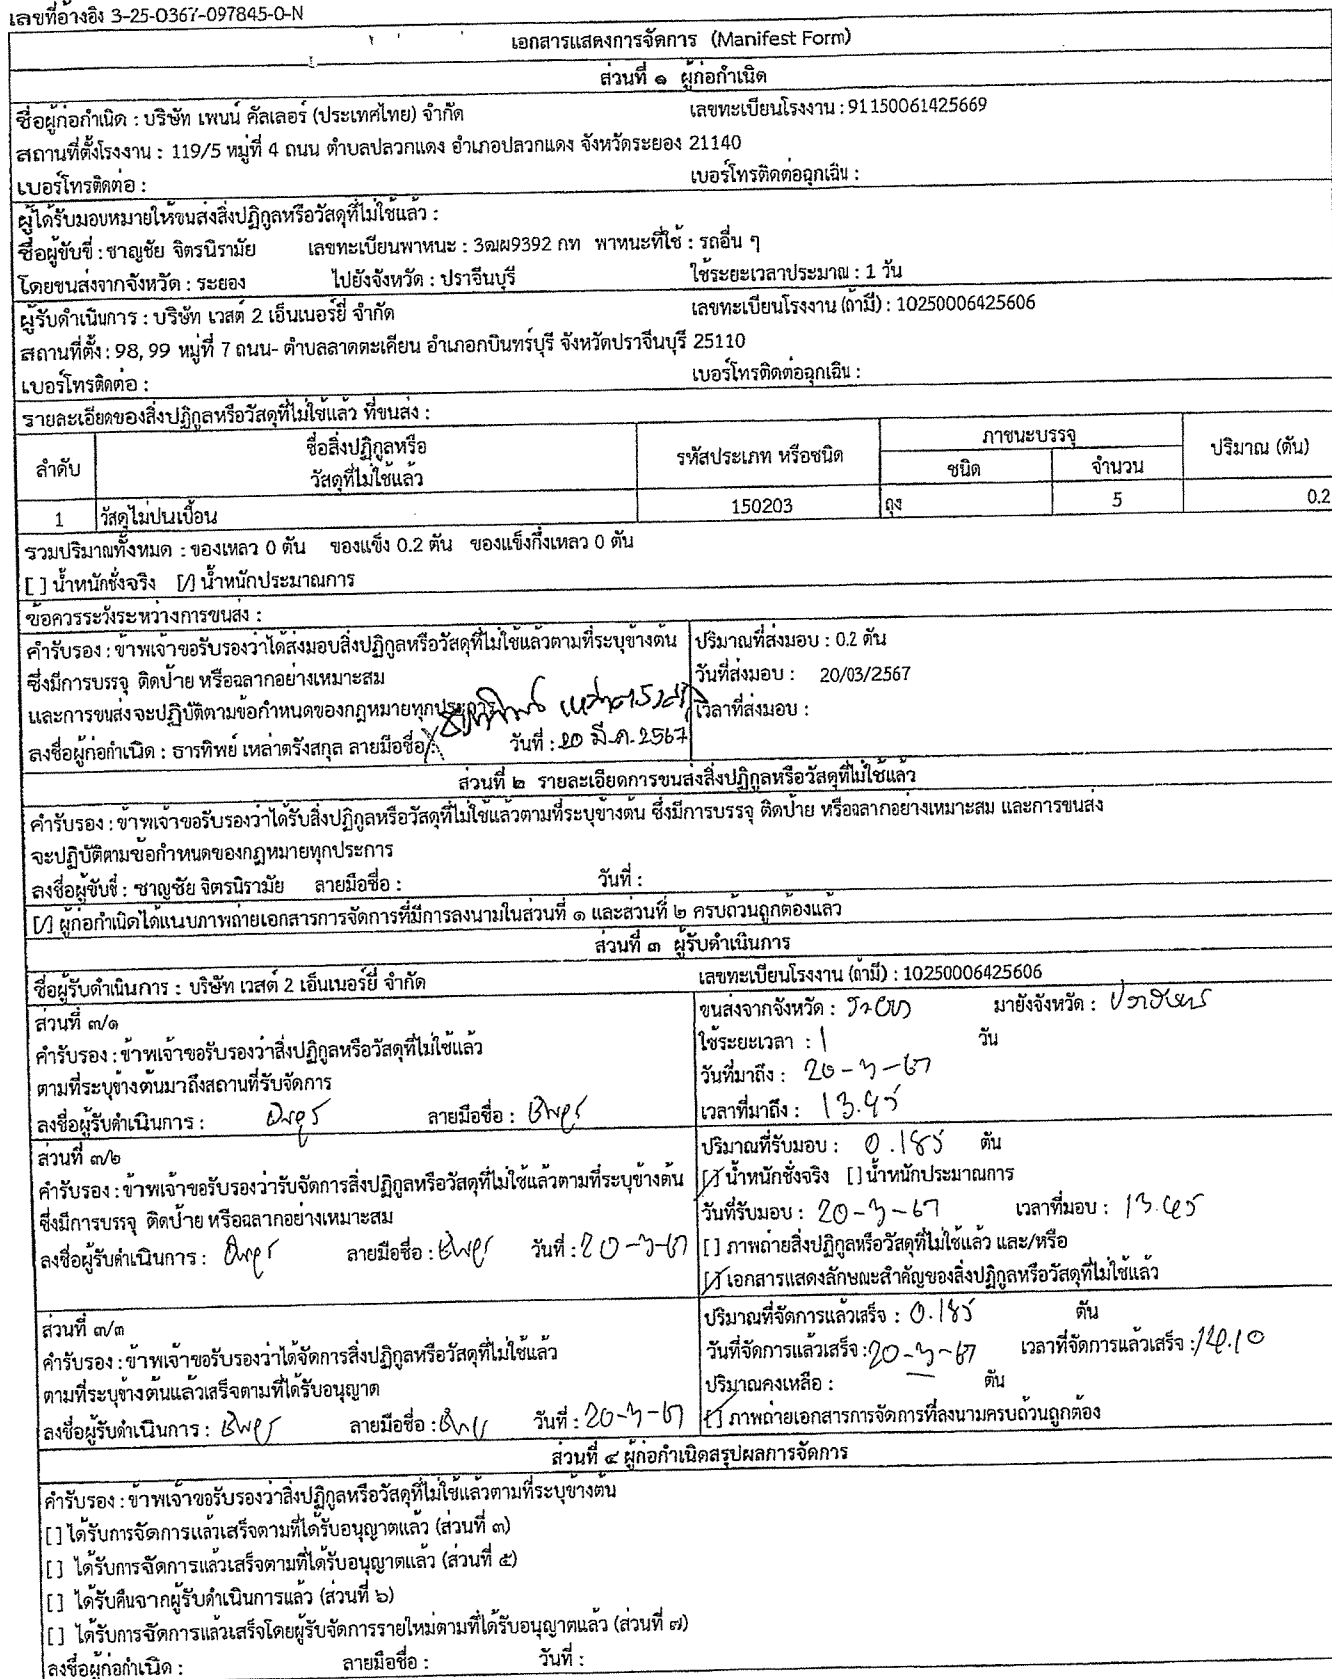 เลขที่อ้างอิง 3-25-0367-097845-0-N
เอกสารแสดงการจัดการ (Manifest Form)
ส่วนที่ ๑ ผู้ก่อกำเนิด
ชื่อผู้ก่อกำเนิด : บริษัท เพนน์ คัลเลอร์ (ประเทศไทย) จำกัด เลขทะเบียนโรงงาน : 91150061425669
สถานที่ตั้งโรงงาน : 119/5 หมู่ที่ 4 ถนน ตำบลปลวกแดง อำเภอปลวกแดง จังหวัดระยอง 21140
เบอร์โทรติดต่อ : เบอร์โทรติดต่อฉุกเฉิน :
ผู้ได้รับมอบหมายให้ขนส่งสิ่งปฏิกูลหรือวัสดุที่ไม่ใช้แล้ว :
ชื่อผู้ขับขี่ : ชาญชัย จิตรนิรามัย เลขทะเบียนพาหนะ : 3ฒผ9392 กท พาหนะที่ใช้ : รถอื่น ๆ
โดยขนส่งจากจังหวัด : ระยอง ไปยังจังหวัด : ปราจีนบุรี ใช้ระยะเวลาประมาณ : 1 วัน
ผู้รับดำเนินการ : บริษัท เวสต์ 2 เอ็นเนอร์ยี่ จำกัด เลขทะเบียนโรงงาน (ถ้ามี) : 10250006425606
สถานที่ตั้ง : 98, 99 หมู่ที่ 7 ถนน- ตำบลลาดตะเคียน อำเภอกบินทร์บุรี จังหวัดปราจีนบุรี 25110
เบอร์โทรติดต่อ : เบอร์โทรติดต่อฉุกเฉิน :
รายละเอียดของสิ่งปฏิกูลหรือวัสดุที่ไม่ใช้แล้ว ที่ขนส่ง :
ลำดับ ชื่อสิ่งปฏิกูลหรือ วัสดุที่ไม่ใช้แล้ว รหัสประเภท หรือชนิด ภาชนะบรรจุ ปริมาณ (ตัน)
ชนิด จำนวน
1 วัสดุไม่ปนเปื้อน 150203 ถุง 5 0.2
รวมปริมาณทั้งหมด : ของเหลว 0 ตัน ของแข็ง 0.2 ตัน ของแข็งกึ่งเหลว 0 ตัน
[ ] น้ำหนักชั่งจริง [/] น้ำหนักประมาณการ
ข้อควรระวังระหว่างการขนส่ง :
คำรับรอง : ข้าพเจ้าขอรับรองว่าได้ส่งมอบสิ่งปฏิกูลหรือวัสดุที่ไม่ใช้แล้วตามที่ระบุข้างต้น ปริมาณที่ส่งมอบ : 0.2 ตัน
ซึ่งมีการบรรจุ ติดป้าย หรือฉลากอย่างเหมาะสม วันที่ส่งมอบ : 20/03/2567
และการขนส่งจะปฏิบัติตามข้อกำหนดของกฎหมายทุกประการ เวลาที่ส่งมอบ :
ลงชื่อผู้ก่อกำเนิด : ธารทิพย์ เหล่าตรังสกุล ลายมือชื่อ วันที่ : 20 มี.ค. 2567
ส่วนที่ ๒ รายละเอียดการขนส่งสิ่งปฏิกูลหรือวัสดุที่ไม่ใช้แล้ว
คำรับรอง : ข้าพเจ้าขอรับรองว่าได้รับสิ่งปฏิกูลหรือวัสดุที่ไม่ใช้แล้วตามที่ระบุข้างต้น ซึ่งมีการบรรจุ ติดป้าย หรือฉลากอย่างเหมาะสม และการขนส่ง
จะปฏิบัติตามข้อกำหนดของกฎหมายทุกประการ
ลงชื่อผู้ขับขี่ : ชาญชัย จิตรนิรามัย ลายมือชื่อ : วันที่ :
[/] ผู้ก่อกำเนิดได้แนบภาพถ่ายเอกสารการจัดการที่มีการลงนามในส่วนที่ ๑ และส่วนที่ ๒ ครบถ้วนถูกต้องแล้ว
ส่วนที่ ๓ ผู้รับดำเนินการ
ชื่อผู้รับดำเนินการ : บริษัท เวสต์ 2 เอ็นเนอร์ยี่ จำกัด เลขทะเบียนโรงงาน (ถ้ามี) : 10250006425606
ส่วนที่ ๓/๑ ขนส่งจากจังหวัด : ระยอง มายังจังหวัด : ปราจีนบุรี
คำรับรอง : ข้าพเจ้าขอรับรองว่าสิ่งปฏิกูลหรือวัสดุที่ไม่ใช้แล้ว ใช้ระยะเวลา : 1 วัน
ตามที่ระบุข้างต้นมาถึงสถานที่รับจัดการ วันที่มาถึง : 20-3-67
ลงชื่อผู้รับดำเนินการ : ลายมือชื่อ : เวลาที่มาถึง : 13.45
ส่วนที่ ๓/๒ ปริมาณที่รับมอบ : 0.185 ตัน
คำรับรอง : ข้าพเจ้าขอรับรองว่ารับจัดการสิ่งปฏิกูลหรือวัสดุที่ไม่ใช้แล้วตามที่ระบุข้างต้น [/] น้ำหนักชั่งจริง [] น้ำหนักประมาณการ
ซึ่งมีการบรรจุ ติดป้าย หรือฉลากอย่างเหมาะสม วันที่รับมอบ : 20-3-67 เวลาที่มอบ : 13.45
ลงชื่อผู้รับดำเนินการ : ลายมือชื่อ : วันที่ : 20-3-67 [ ] ภาพถ่ายสิ่งปฏิกูลหรือวัสดุที่ไม่ใช้แล้ว และ/หรือ
[/] เอกสารแสดงลักษณะสำคัญของสิ่งปฏิกูลหรือวัสดุที่ไม่ใช้แล้ว
ส่วนที่ ๓/๓ ปริมาณที่จัดการแล้วเสร็จ : 0.185 ตัน
คำรับรอง : ข้าพเจ้าขอรับรองว่าได้จัดการสิ่งปฏิกูลหรือวัสดุที่ไม่ใช้แล้ว วันที่จัดการแล้วเสร็จ : 20-3-67 เวลาที่จัดการแล้วเสร็จ : 14.10
ตามที่ระบุข้างต้นแล้วเสร็จตามที่ได้รับอนุญาต ปริมาณคงเหลือ : - ตัน
ลงชื่อผู้รับดำเนินการ : ลายมือชื่อ : วันที่ : 20-3-67 [/] ภาพถ่ายเอกสารการจัดการที่ลงนามครบถ้วนถูกต้อง
ส่วนที่ ๔ ผู้ก่อกำเนิดสรุปผลการจัดการ
คำรับรอง : ข้าพเจ้าขอรับรองว่าสิ่งปฏิกูลหรือวัสดุที่ไม่ใช้แล้วตามที่ระบุข้างต้น
[ ] ได้รับการจัดการแล้วเสร็จตามที่ได้รับอนุญาตแล้ว (ส่วนที่ ๓)
[ ] ได้รับการจัดการแล้วเสร็จตามที่ได้รับอนุญาตแล้ว (ส่วนที่ ๕)
[ ] ได้รับคืนจากผู้รับดำเนินการแล้ว (ส่วนที่ ๖)
[ ] ได้รับการจัดการแล้วเสร็จโดยผู้รับจัดการรายใหม่ตามที่ได้รับอนุญาตแล้ว (ส่วนที่ ๗)
ลงชื่อผู้ก่อกำเนิด : ลายมือชื่อ : วันที่ :